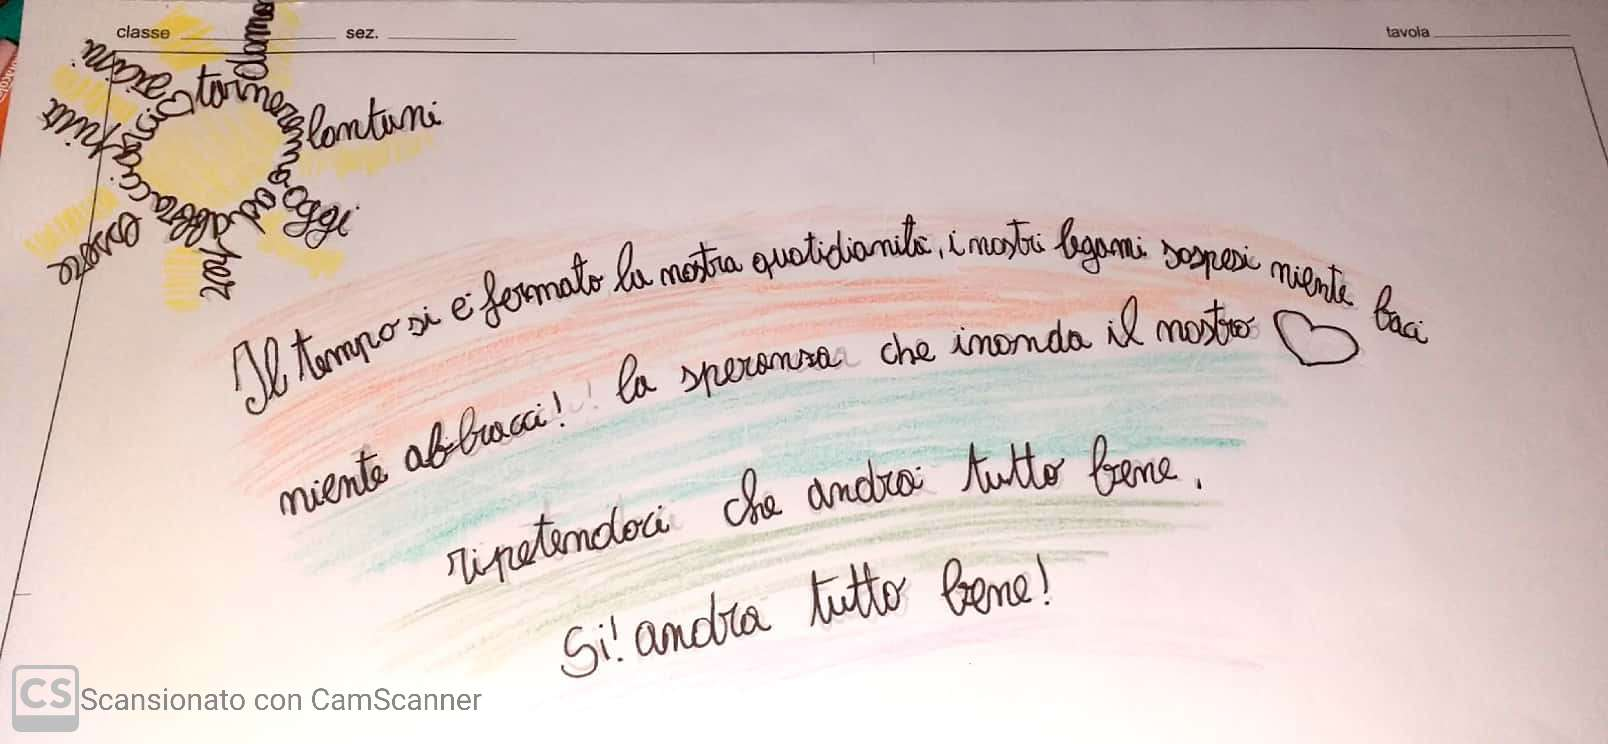 classe sez. tavola
torneremo ad abbracciarci
lontani
oggi
per
essere
più
vicini
doma
Il tempo si è fermato la nostra quotidianità, i nostri legami sospesi niente baci
niente abbracci! la speranza che inonda il nostro
ripetendoci che andrà tutto bene.
Si! andra tutto bene!
CS Scansionato con CamScanner